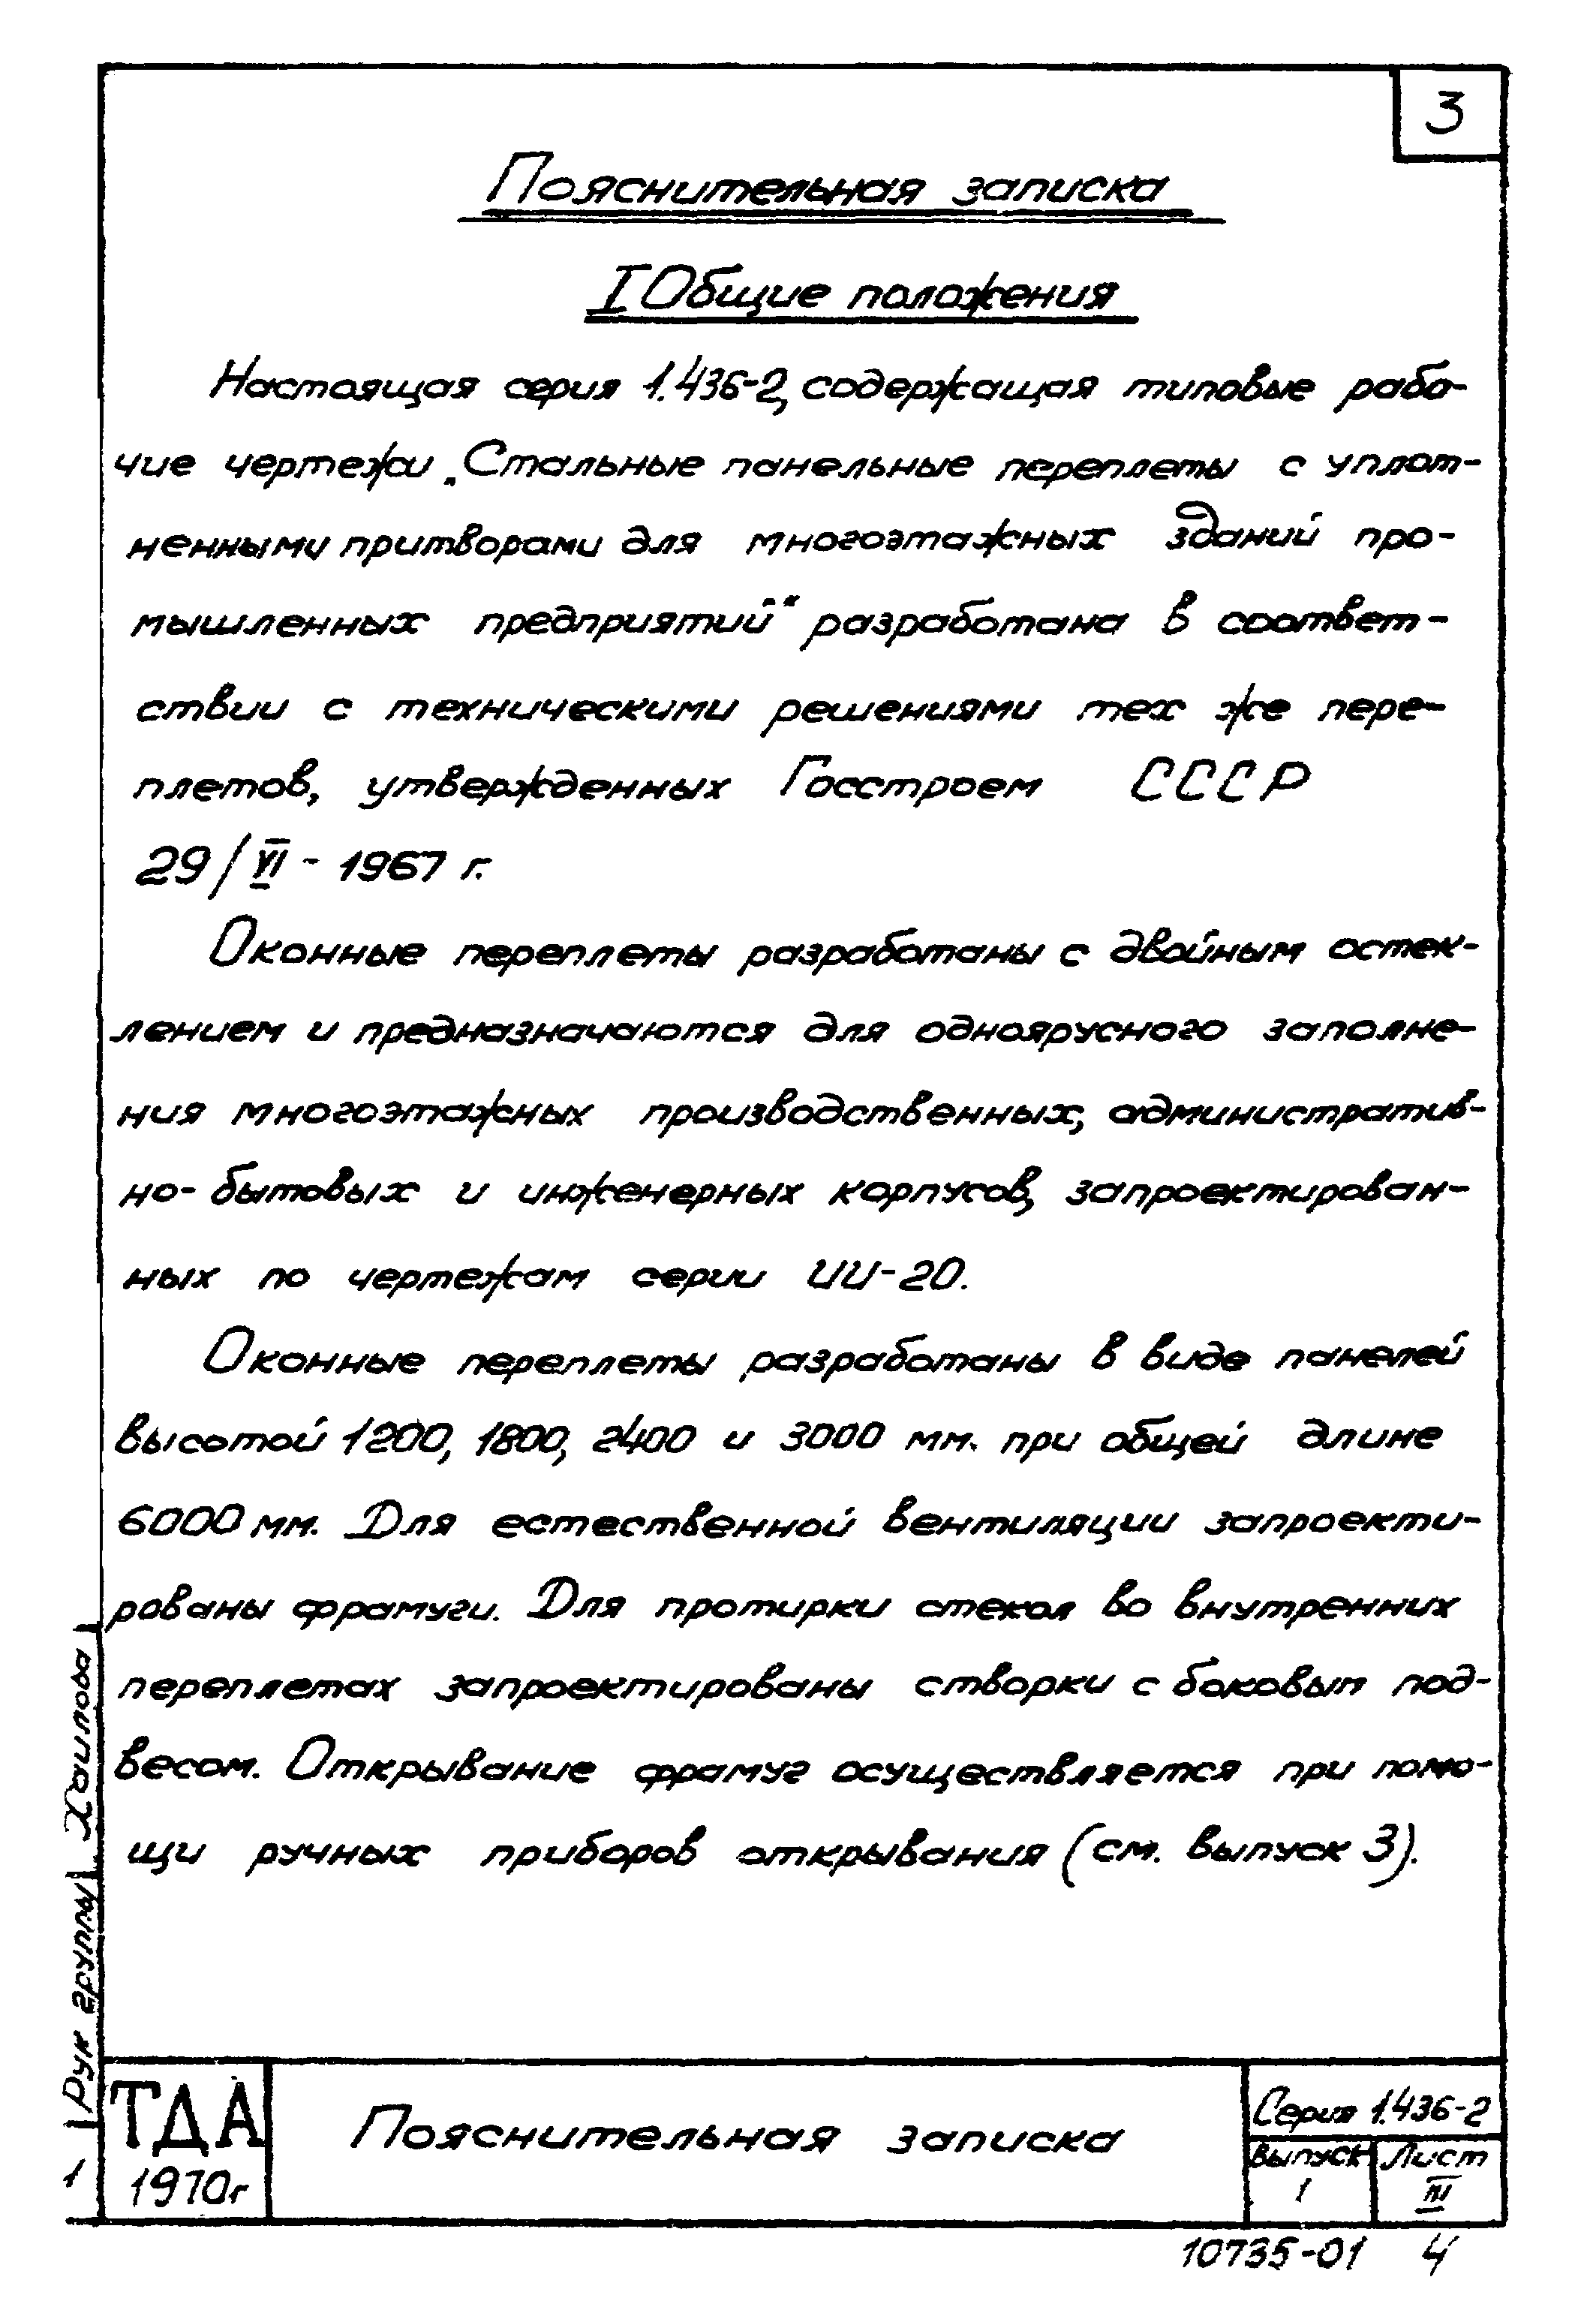 3
Пояснительная записка
I Общие положения
Настоящая серия 1.436-2, содержащая типовые рабо-
чие чертежи „Стальные панельные переплеты с уплот-
ненными притворами для многоэтажных зданий про-
мышленных предприятий“ разработана в соответ-
ствии с техническими решениями тех же пере-
плетов, утвержденных Госстроем СССР
29/VI - 1967 г.
Оконные переплеты разработаны с двойным остек-
лением и предназначаются для одноярусного заполне-
ния многоэтажных производственных, административ-
но-бытовых и инженерных корпусов, запроектирован-
ных по чертежам серии ИИ-20.
Оконные переплеты разработаны в виде панелей
высотой 1200, 1800, 2400 и 3000 мм. при общей длине
6000 мм. Для естественной вентиляции запроекти-
рованы фрамуги. Для протирки стекол во внутренних
переплетах запроектированы створки с боковып под-
весом. Открывание фрамуг осуществляется при помо-
щи ручных приборов открывания (см. выпуск 3).
Рук группы Хаилова
1
ТДА
1970г
Пояснительная записка
Серия 1.436-2
Выпуск
1
Лист
III
10735-01 4